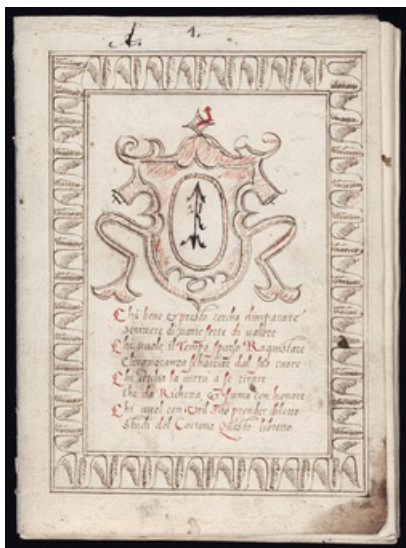 A. 1.
R
Chi bene & presto cercha d'imparare
Scrivere di varie sorte di
Chi vuole il Tempo sparso Raquistare
Et ignoranza schacciar dal suo cuore
Chi cercha la virtu a se tirare
Che da Richeza & fama con honore
Chi vuol con prender diletto
Studi del Cortona Questo libretto